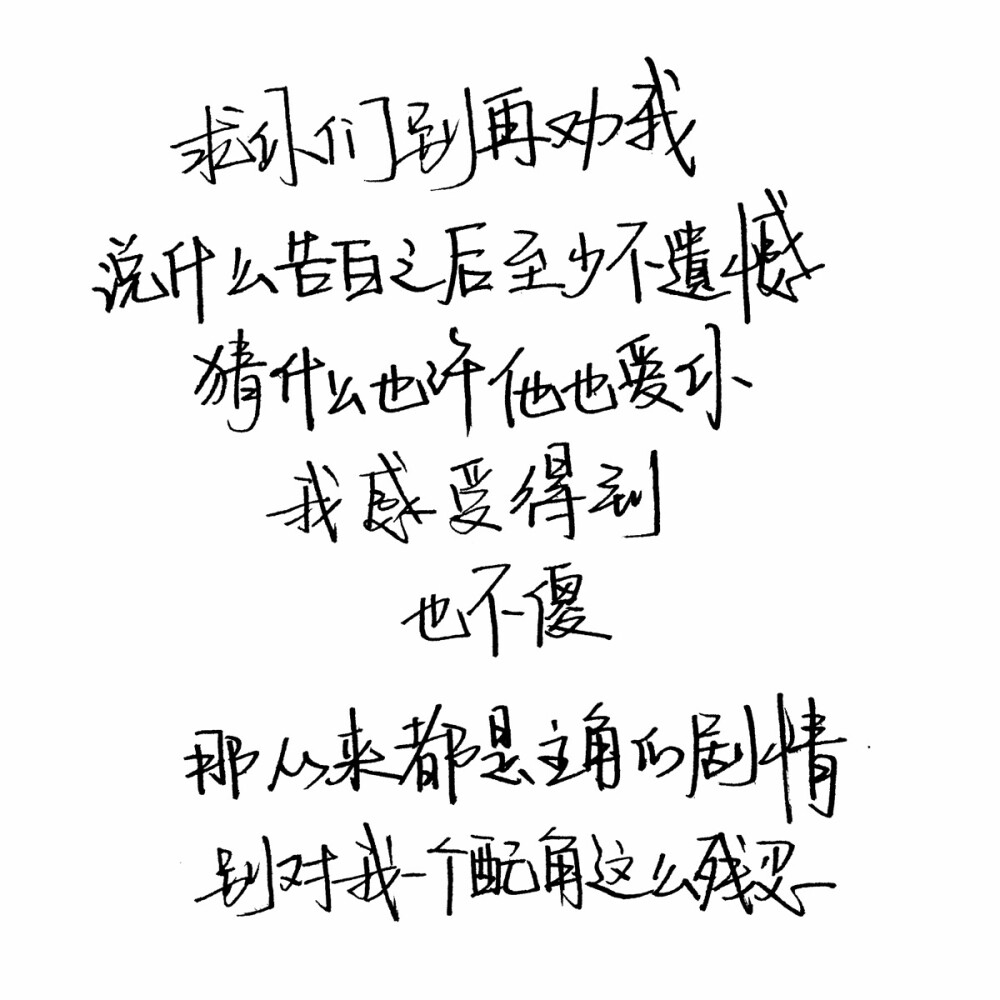 求你们别再劝我
说什么告白之后至少不遺憾
猜什么也许他也爱你
我感受得到
也不傻
那从来都是主角的剧情
别对我一个配角这么残忍